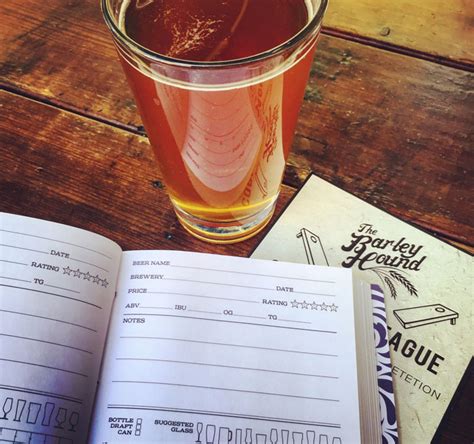 DATE
RATING
TG
BEER NAME
DATE
BREWERY
PRICE
RATING
ABV IBU OG TG
NOTES
BOTTLE
DRAFT
CAN
SUGGESTED
GLASS
The
Barley
Hound
AGUE
ETETION